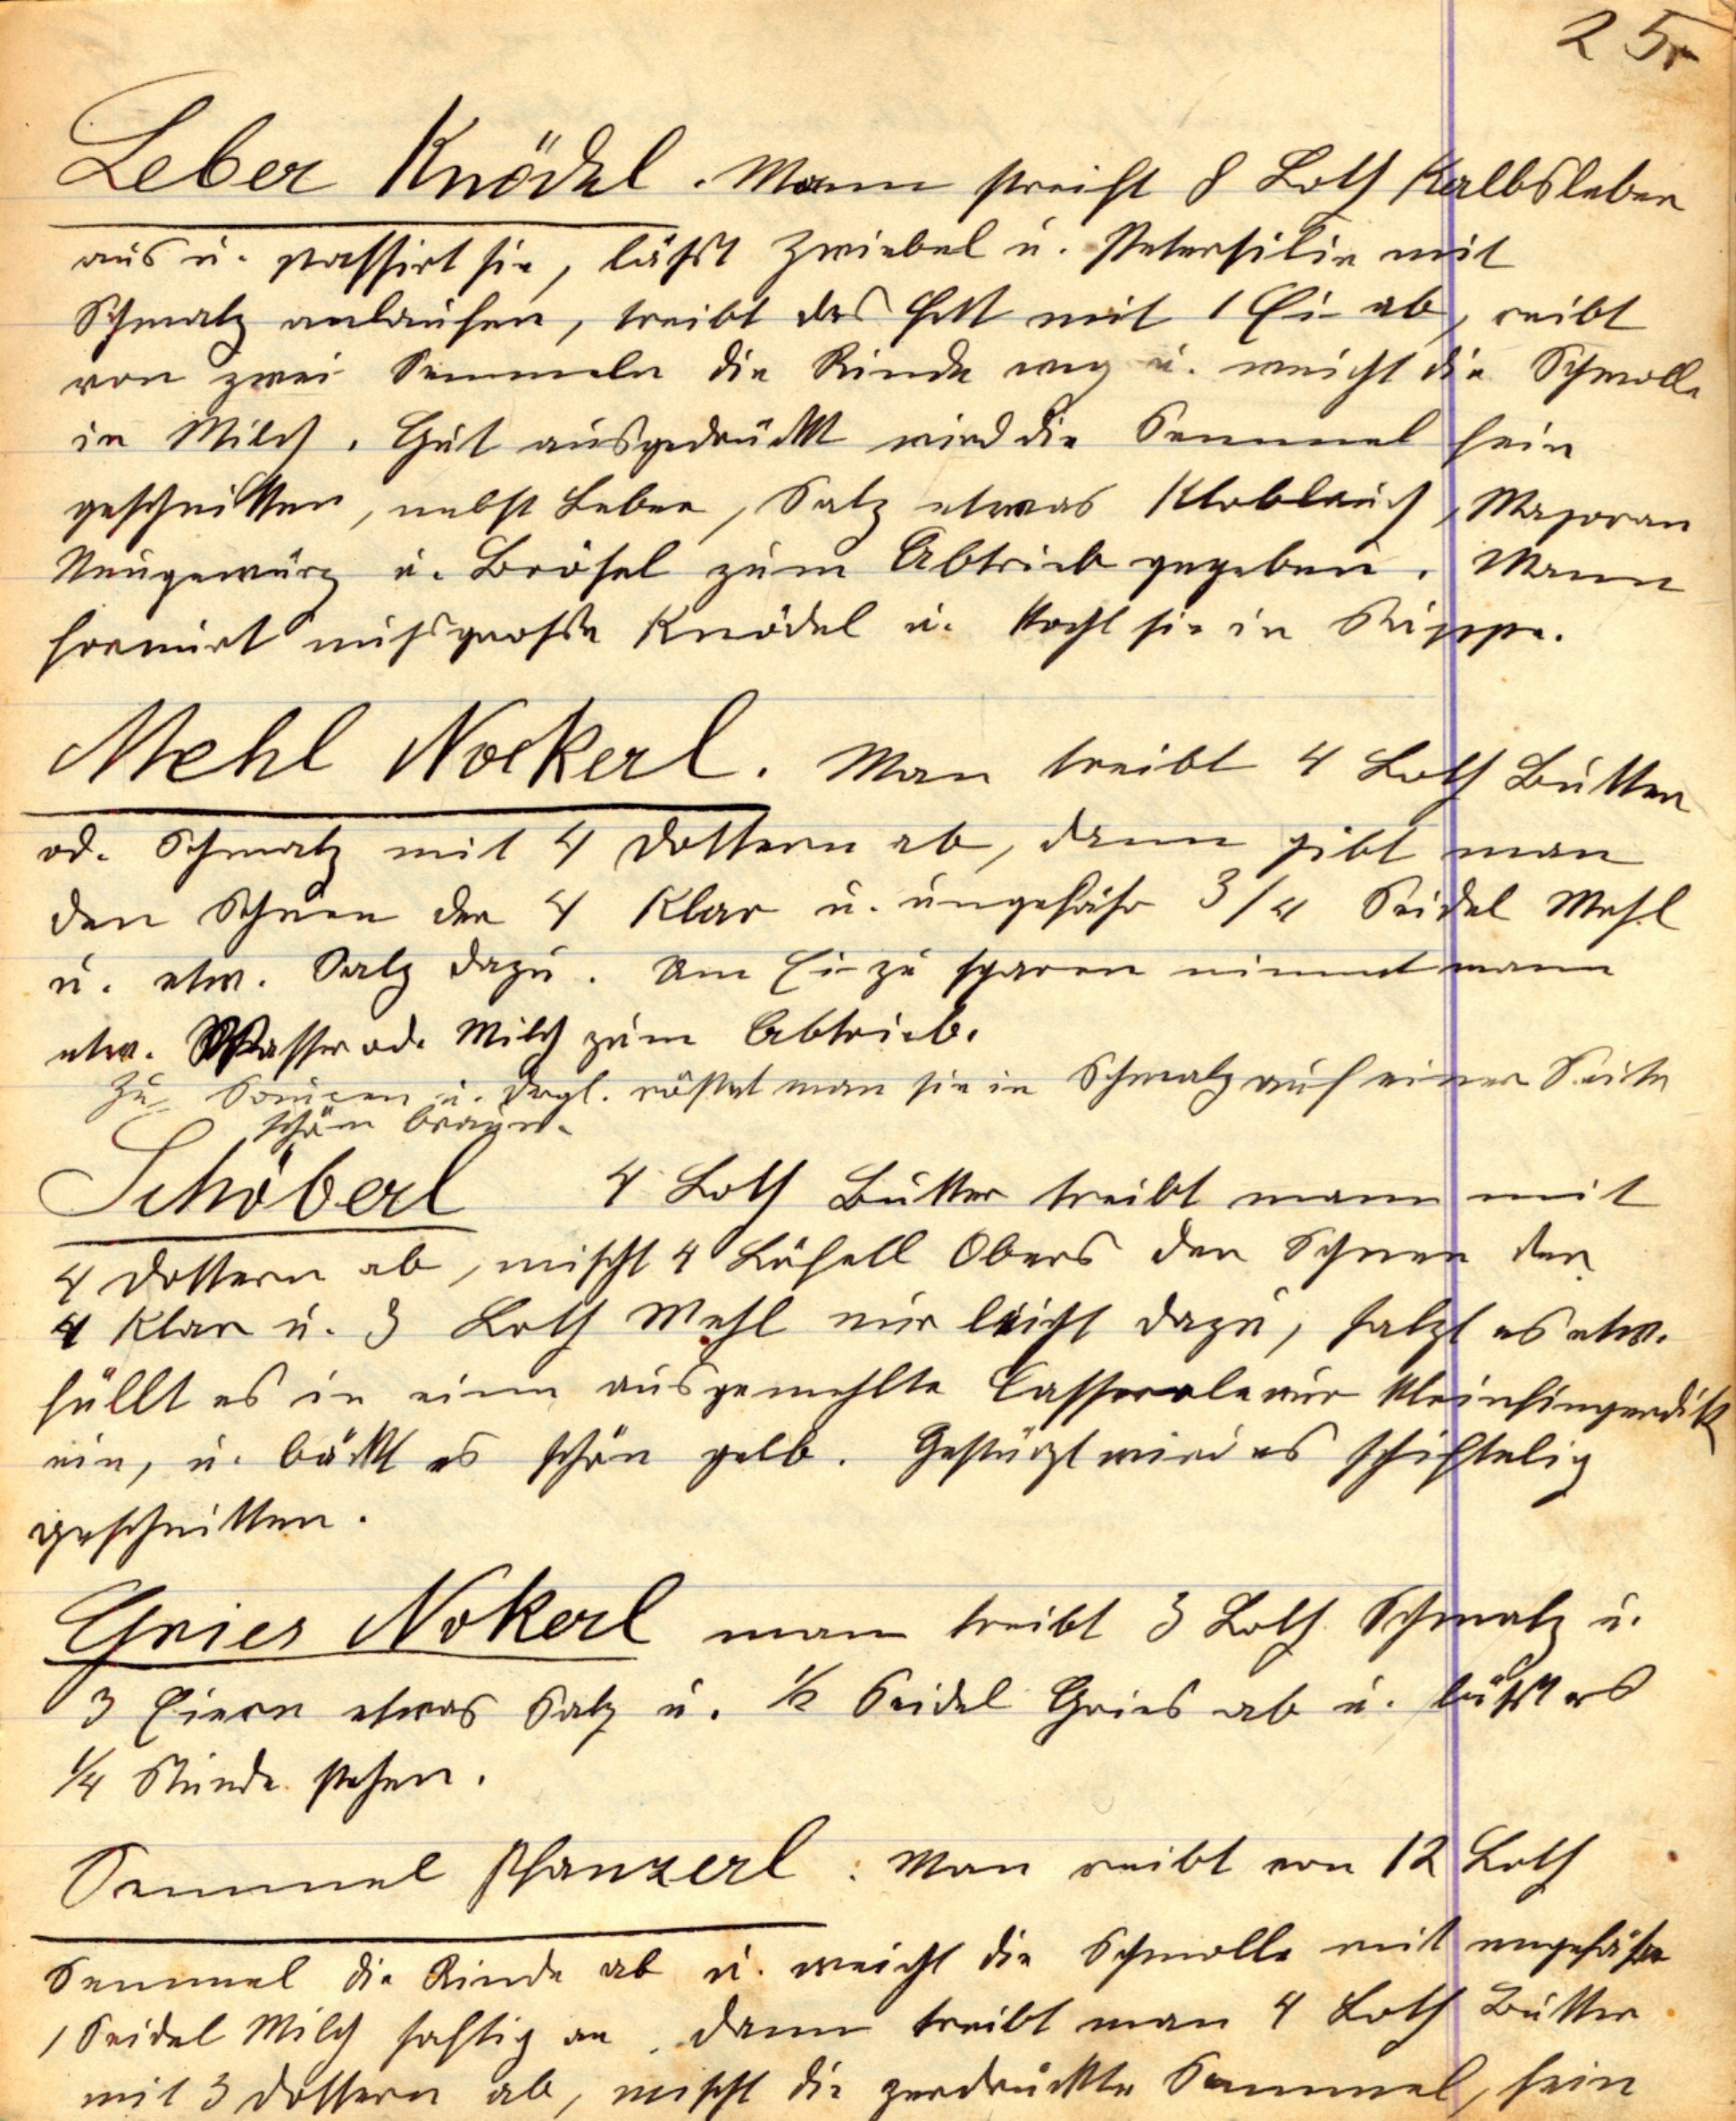 25r
Leber Knödel. Mann streift 8 Loth Kalbsleber
aus u. passirt sie, läßt Zwiebel u. Petersilie mit
Schmalz anlaufen, treibt das Fett mit 1 Ei ab, reibt
von zwei Semmeln die Rinde weg u. weicht die Schmolle
in Milch. Gut ausgedrückt wird die Semmel fein
geschnitten, nebst Leber, Salz etwas Knoblauch, Majoran
Neugewürz u. Brösel zum Abtrieb gegeben. Mann
formirt nußgroße Knödel u. kocht sie in Suppe.
Mehl Nockerl. Man treibt 4 Loth Butter
od. Schmalz mit 4 Dottern ab, dann gibt man
den Schnee der 4 Klar u. ungefähr 3/4 Seidel Mehl
u. etw. Salz dazu. Um Ei zu sparen nimmt mann
etw. Wasser od. Milch zum Abtrieb.
Zu Saucen u. dergl. röstet man sie in Schmalz auf einer Seite
schön braun.
Schöberl 4 Loth Butter treibt mann mit
4 Dottern ab, mischt 4 Löfell Obers den Schnee der
4 Klar u. 3 Loth Mehl nur leicht dazu, salzt es etw.
füllt es in eine ausgemehlte Casserole nur kleinfingerdik
ein, u. bäckt es schön gelb. Gestürzt wird es schiftelig
geschnitten.
Gries Nokerl man treibt 3 Loth Schmalz u.
3 Eiern etwas Salz u. 1/2 Seidel Gries ab u. läßt es
1/4 Stunde stehen.
Semmel Pfanzerl. Man reibt von 12 Loth
Semmel die Rinde ab u. weicht die Schmolle mit ungefähr
1 Seidel Milch saftig an. Dann treibt man 4 Loth Butter
mit 3 Dottern ab, mischt die zerdrückte Semmel, fein